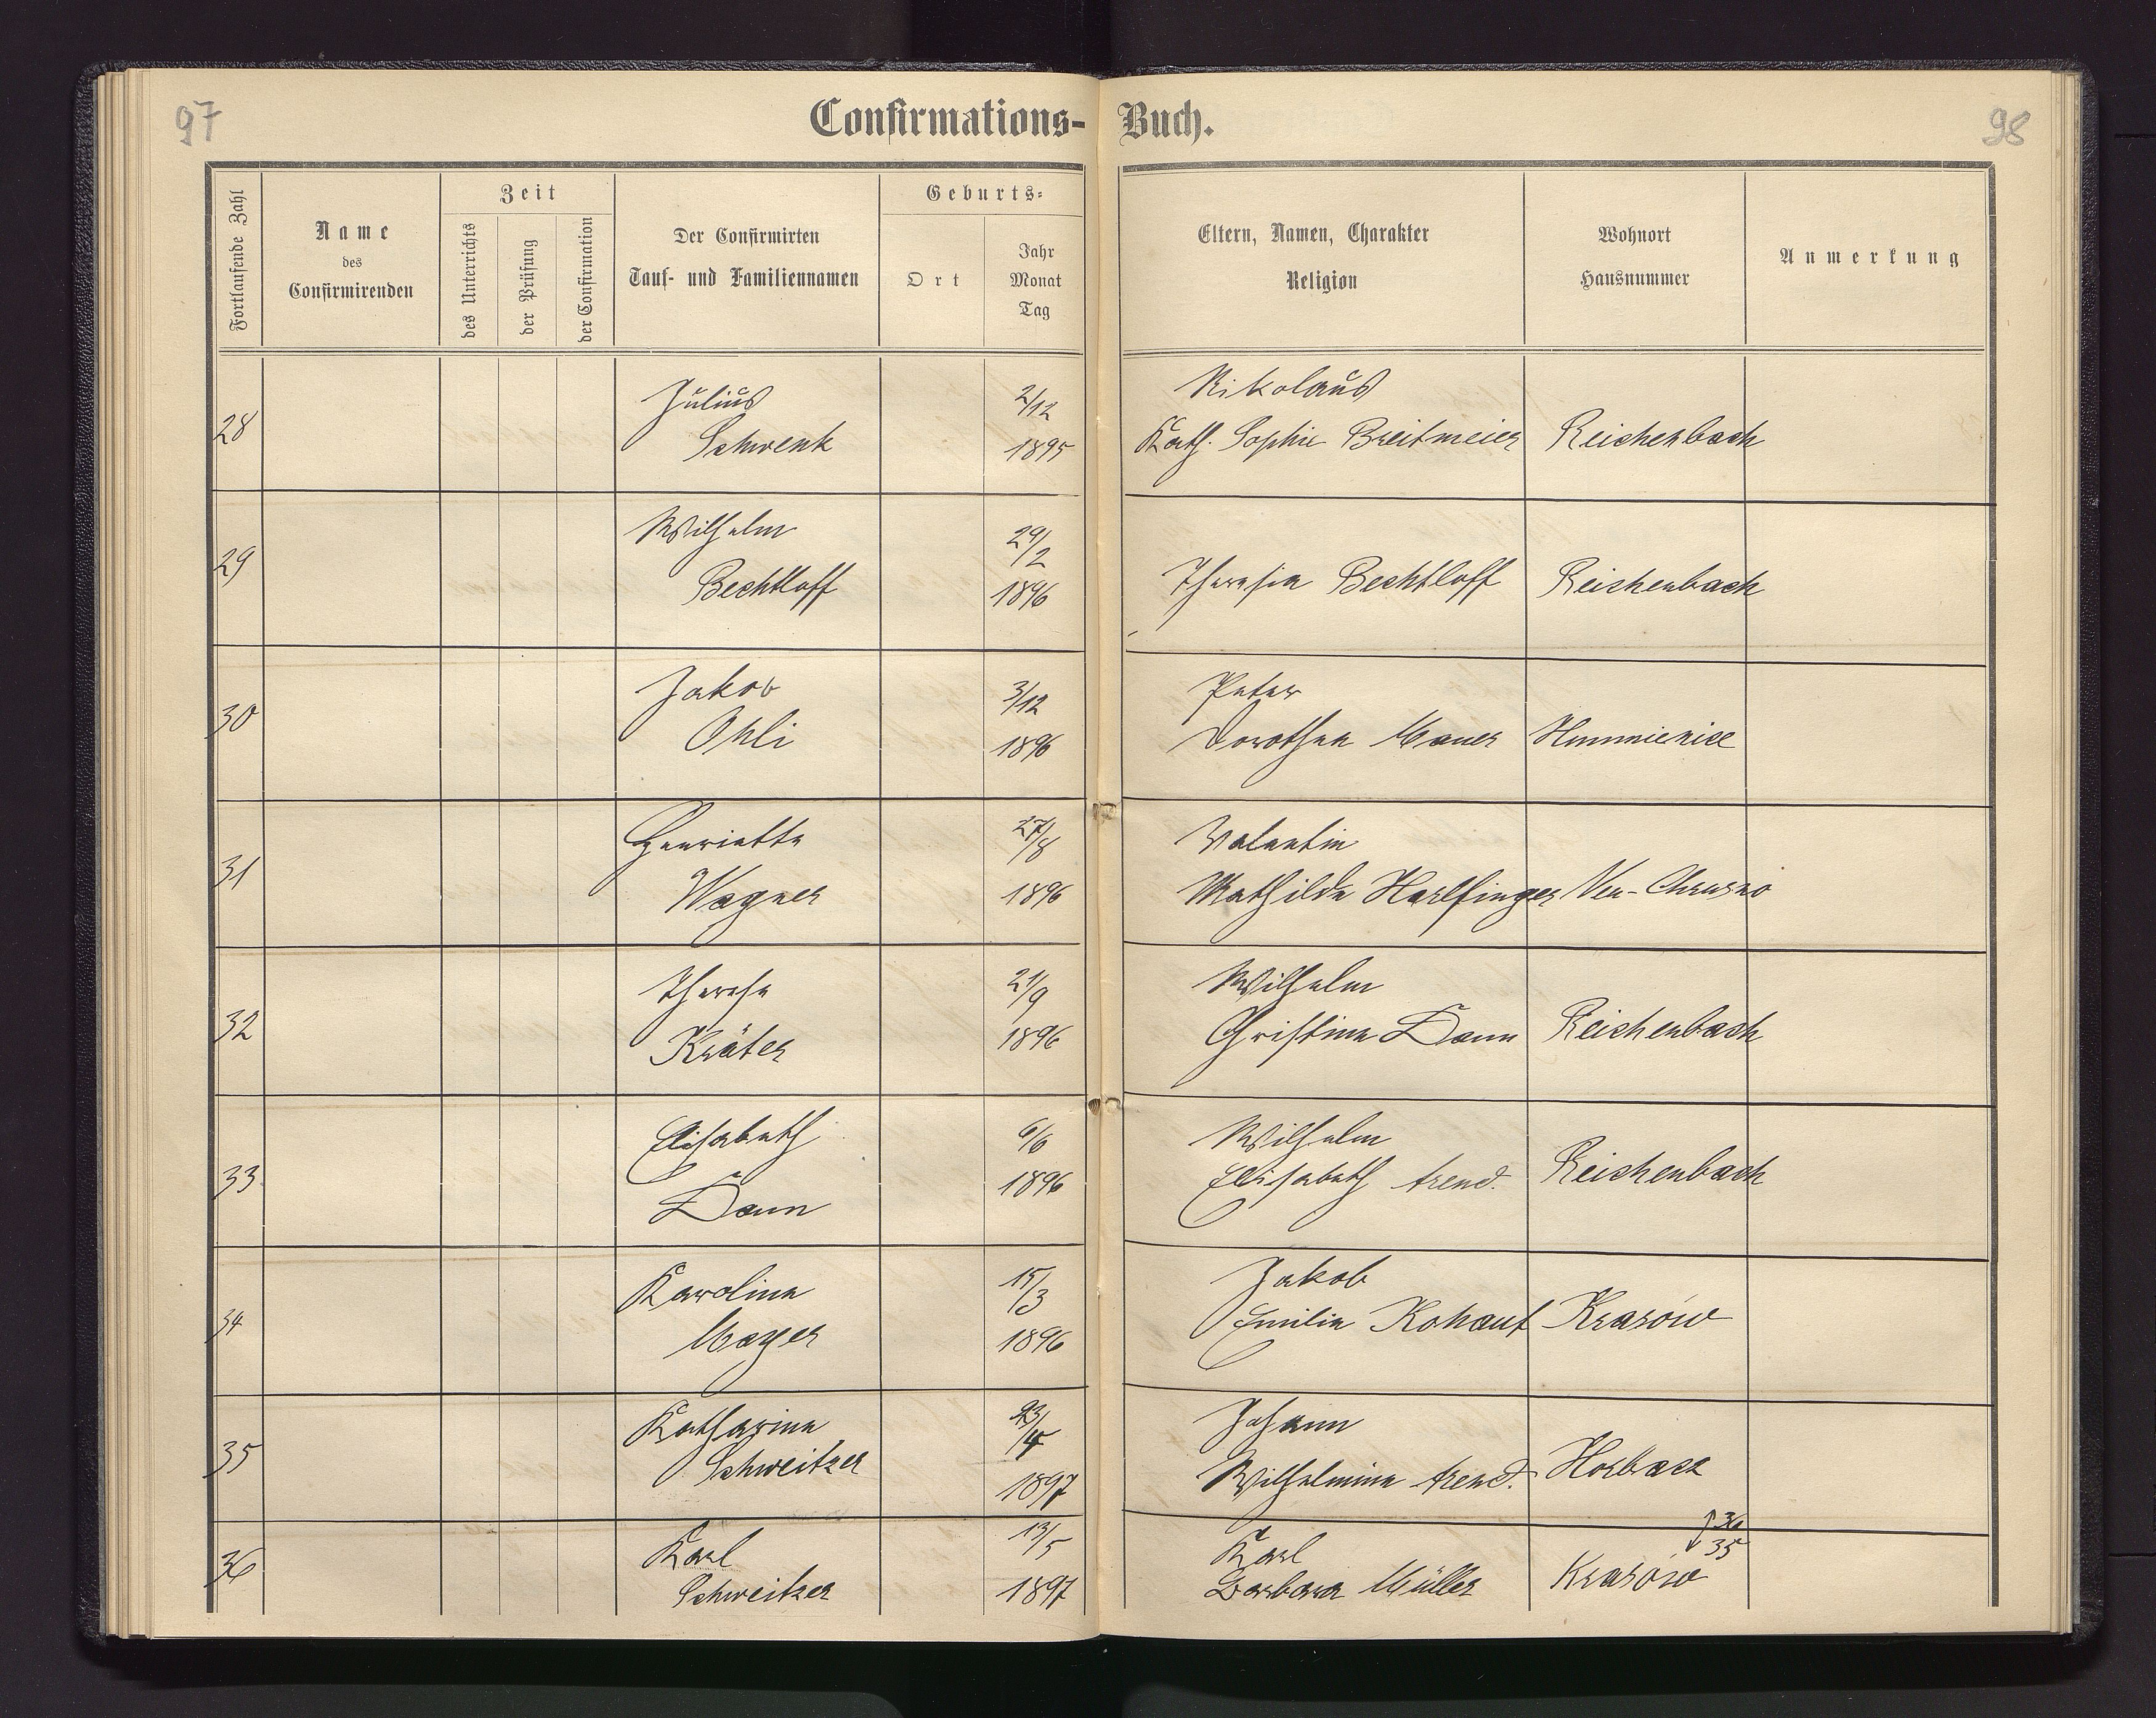 97
Confirmations- Buch.
98
Fortlaufende Zahl
Name
des
Confirmirenden
Zeit
des Unterrichts
der Prüfung
der Confirmation
Der Confirmirten
Tauf- und Familiennamen
Geburts-
Ort
Jahr
Monat
Tag
Eltern, Namen, Charakter
Religion
Wohnort
Hausnummer
Anmerkung
Julius 2/12 Nikolaus
28 Schwenk 1895 Kath. Sophie Breitmeier Reichenbach
Wilhelm 29/2
29 Bechtloff 1896 Theresia Bechtloff Reichenbach
Jakob 3/12 Peter
30 Ohli 1896 Dorothea Mauer
Henriette 27/8 Valentin
31 Wagner 1896 Mathilde Harlfinger Neu-Chrusno
Therese 21/9 Wilhelm
32 Kräter 1896 Christine Daum Reichenbach
Elisabeth 6/6 Wilhelm
33 Daum 1896 Elisabeth trend. Reichenbach
Karoline 15/3 Jakob
34 Mayer 1896 Emilie Kohaut Krasów
Katharine 23/4 Johann
35 Schweitzer 1897 Wilhelmine trend. Horbacz
36
35
Karl 13/5 Karl
36 Schweitzer 1897 Barbara Müller Krasów